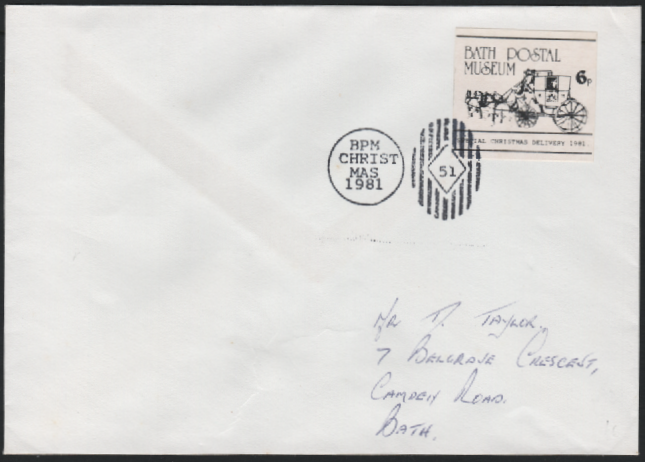 BATH POSTAL
MUSEUM
6p
SPECIAL CHRISTMAS DELIVERY 1981
BPM
CHRIST
MAS
1981
51
Mr D. Taylor,
7 Belgrave Crescent,
Camden Road.
Bath.